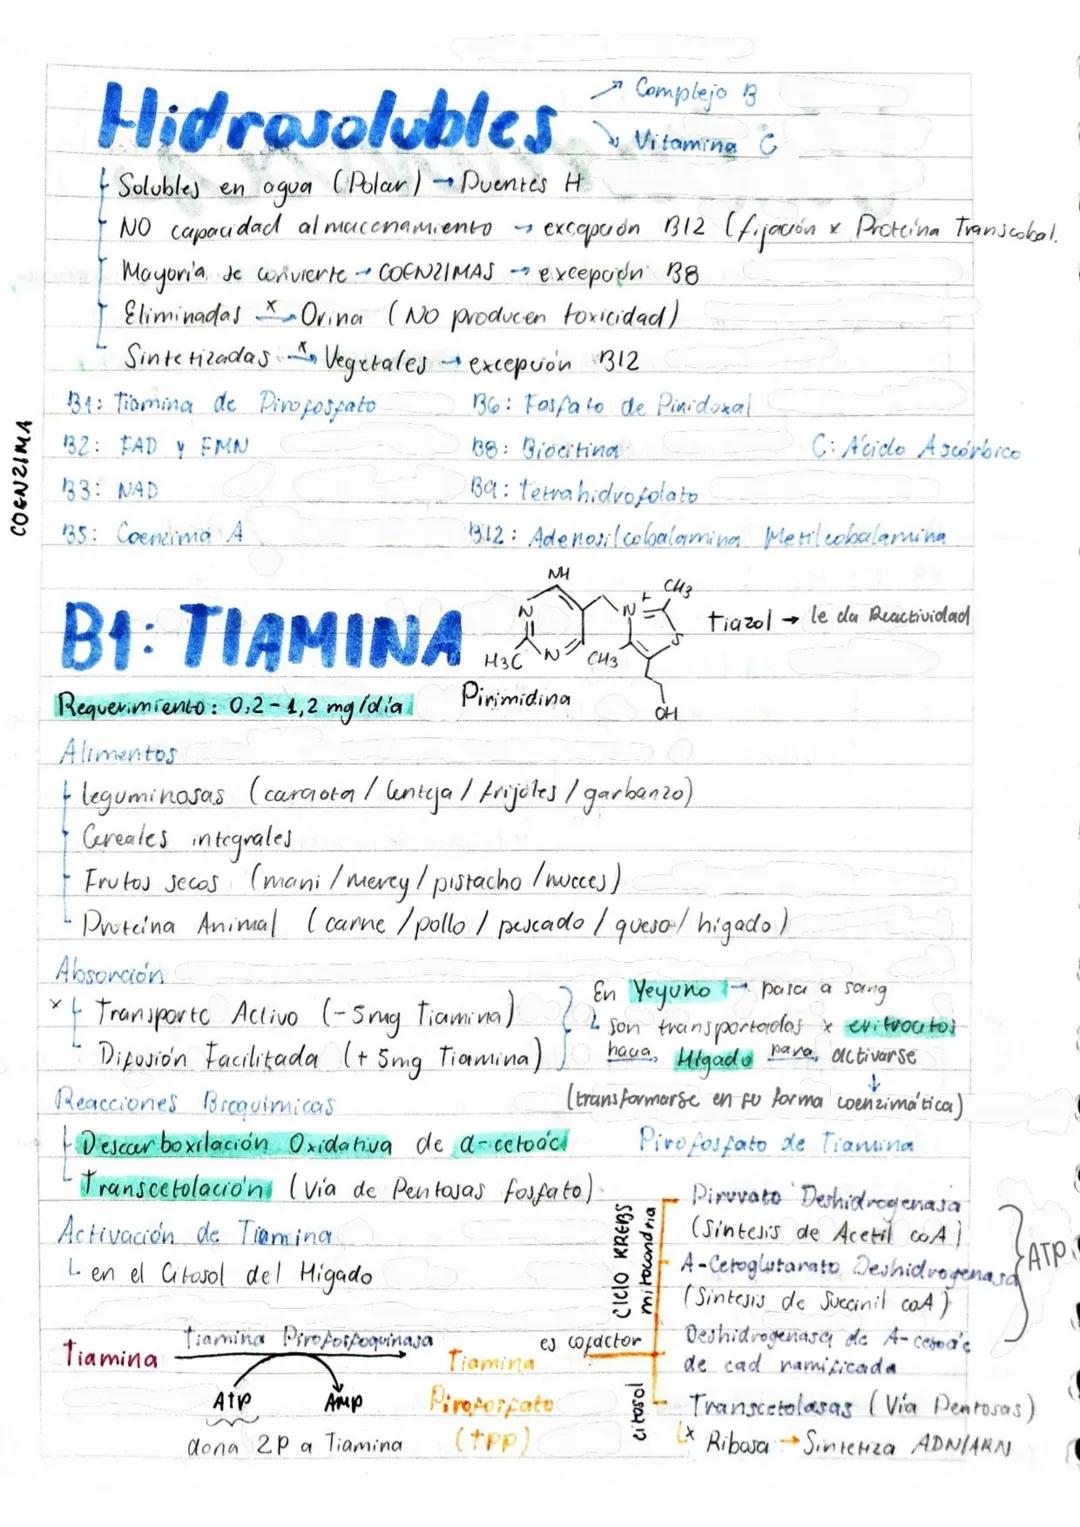 Hidrosolubles
→ Complejo B
→ Vitamina C
Solubles en agua (Polar) → Puentes H
NO capacidad almacenamiento → excepción B12 (fijación x Proteína Transcobal.
Mayoría se convierte → COENZIMAS → excepción B8
Eliminadas x→ Orina (NO producen toxicidad)
Sintetizadas x→ Vegetales → excepción B12
COENZIMA
B1: Tiamina de Pirofosfato
B6: Fosfato de Piridoxal
B2: FAD y FMN
B8: Biocitina
C: Ácido Ascórbico
B3: NAD
B9: Tetrahidrofolato
B5: Coenzima A
B12: Adenosilcobalamina Metilcobalamina
B1: TIAMINA
NH
N
N
H3C
N
+
CH3
S
CH3
OH
Pirimidina
Tiazol → le da Reactividad
Requerimiento: 0,2-1,2 mg/día
Alimentos
Leguminosas (caraota / lenteja / frijoles / garbanzo)
Cereales integrales
Frutos secos (mani / merey / pistacho / nueces)
Proteína Animal (carne / pollo / pescado / queso / hígado)
Absorción
x Transporte Activo (-5mg Tiamina)
Difusión Facilitada (+5mg Tiamina)
En Yeyuno → pasa a sang
son transportadas x eritrocitos
hacia Hígado para activarse
(transformarse en su forma coenzimática)
Pirofosfato de Tiamina
Reacciones Bioquímicas
Descarboxilación Oxidativa de α-cetoác
Transcetolación (Vía de Pentosas fosfato)
Activación de Tiamina
en el Citosol del Hígado
Tiamina
Tiamina Pirofosfoquinasa
ATP
AMP
dona 2P a Tiamina
Tiamina
Pirofosfato
(TPP)
es cofactor
CICLO KREBS
mitocondria
Piruvato Deshidrogenasa
(Síntesis de Acetil coA)
A-Cetoglutarato Deshidrogenasa
(Síntesis de Succinil coA)
Deshidrogenasa de A-cetoác
de cad ramificada
ATP
citosol
Transcetolasas (Vía Pentosas)
x Ribosa → Sintetiza ADN/ARN